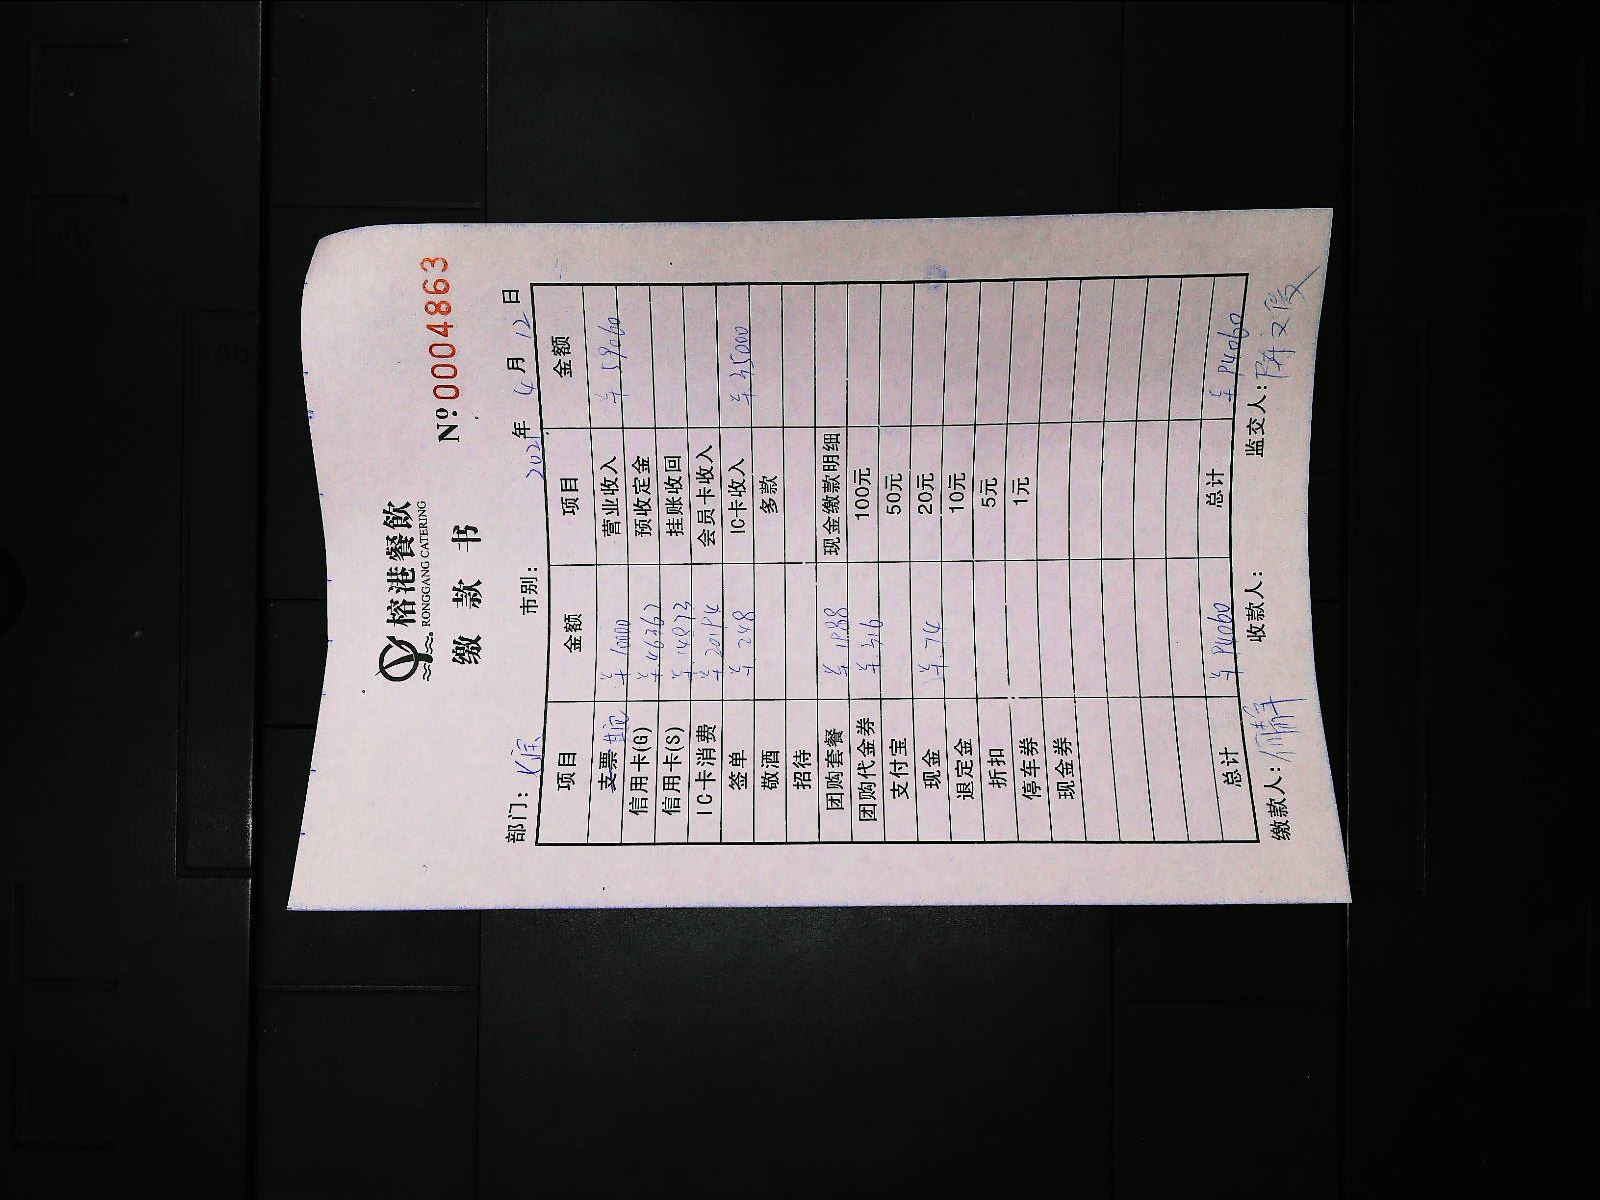 榕港餐飲
RONGGANG CATERING
缴 款 书
№:0004863
部门: 市别: 2021年 4月 12日
项目 金额 项目 金额
支票 ¥10000 营业收入 ¥59060
信用卡(G) ¥46367 预收定金
信用卡(S) ¥14973 挂账收回
IC卡消费 ¥20194 会员卡收入
签单 ¥248 IC卡收入 ¥35000
敬酒 多款
招待
团购套餐 ¥1888 现金缴款明细
团购代金券 ¥316 100元
支付宝 50元
现金 ¥74 20元
退定金 10元
折扣 5元
停车券 1元
现金券
总计 ¥94060 总计 ¥94060
缴款人: 收款人: 监交人: